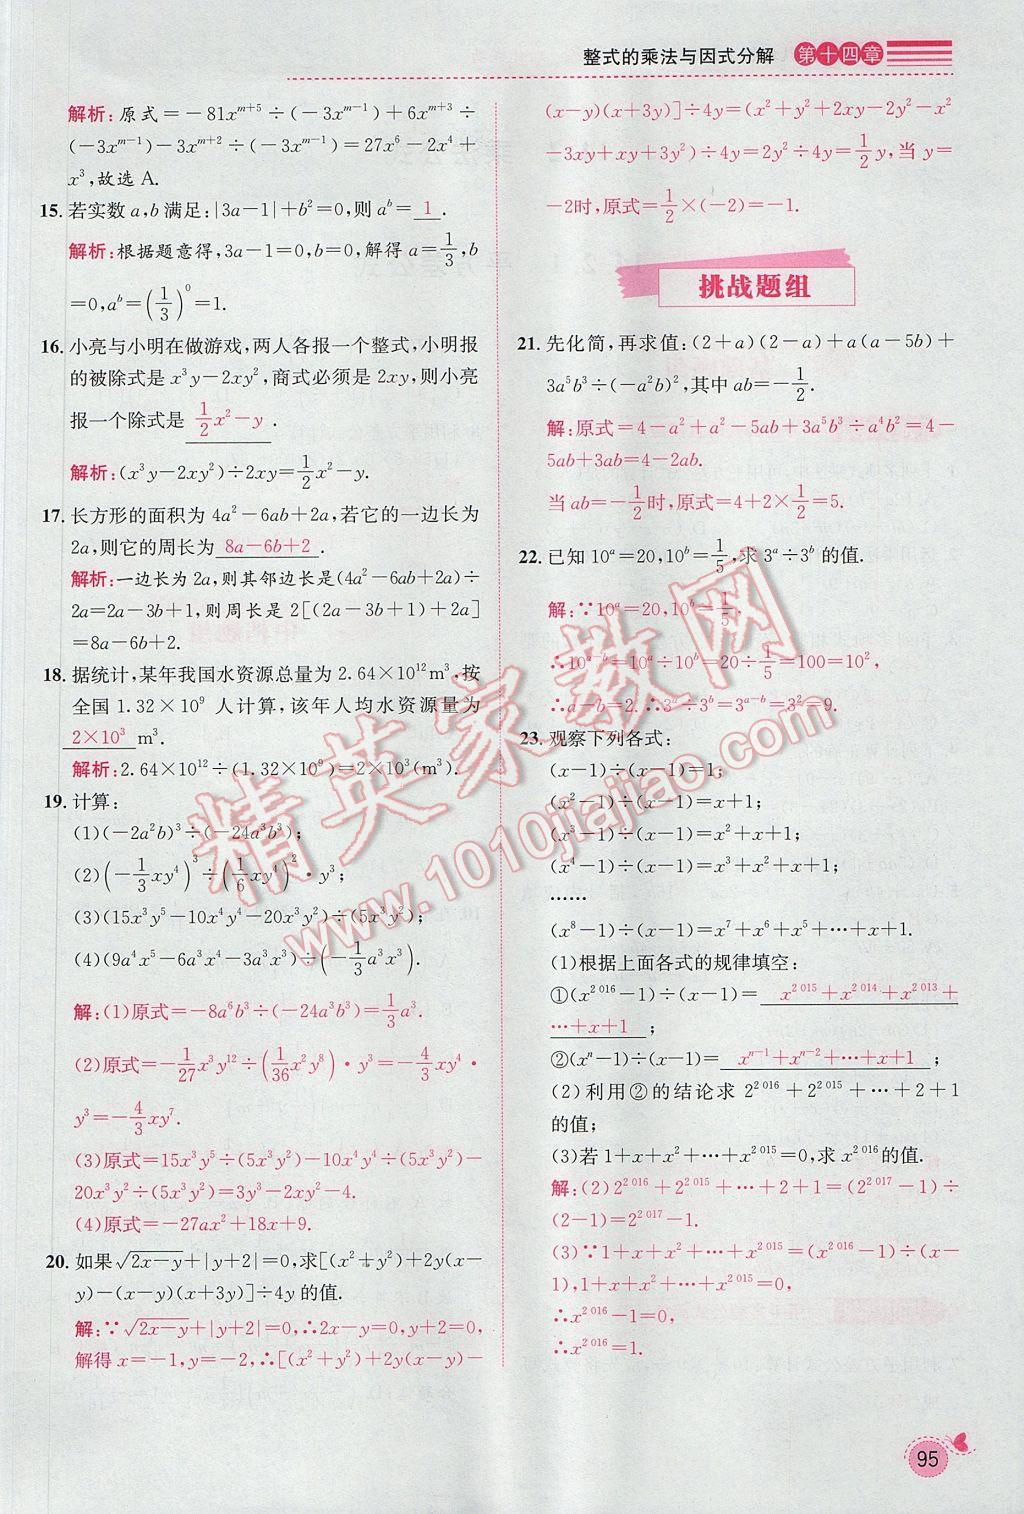 整式的乘法与因式分解 第十四章
解析:原式=-81x^{m+5}÷(-3x^{m-1})+6x^{m+3}÷
(-3x^{m-1})-3x^{m+2}÷(-3x^{m-1})=27x⁶-2x⁴+
x³,故选 A.
15. 若实数 a,b 满足:|3a-1|+b²=0,则 a^b= 1 .
解析:根据题意得,3a-1=0,b=0,解得 a=1/3,b
=0,a^b=(1/3)^0=1.
16. 小亮与小明在做游戏,两人各报一个整式,小明报
的被除式是 x³y-2xy²,商式必须是 2xy,则小亮
报一个除式是 1/2x²-y .
解析:(x³y-2xy²)÷2xy=1/2x²-y.
17. 长方形的面积为 4a²-6ab+2a,若它的一边长为
2a,则它的周长为 8a-6b+2 .
解析:一边长为 2a,则其邻边长是(4a²-6ab+2a)÷
2a=2a-3b+1,则周长是 2[(2a-3b+1)+2a]
=8a-6b+2.
18. 据统计,某年我国水资源总量为 2.64×10¹²m³,按
全国 1.32×10⁹ 人计算,该年人均水资源量为
2×10³ m³.
解析:2.64×10¹²÷(1.32×10⁹)=2×10³(m³).
19. 计算:
(1)(-2a²b)³÷(-24a³b³);
(2)(-1/3xy⁴)³÷(1/6xy⁴)²·y³;
(3)(15x³y⁵-10x⁴y⁴-20x³y²)÷(5x³y²);
(4)(9a⁴x⁵-6a³x⁴-3a³x³)÷(-1/3a³x³).
解:(1)原式=-8a⁶b³÷(-24a³b³)=1/3a³.
(2)原式=-1/27x³y¹²÷(1/36x²y⁸)·y³=-4/3xy⁴·
y³=-4/3xy⁷.
(3)原式=15x³y⁵÷(5x³y²)-10x⁴y⁴÷(5x³y²)-
20x³y²÷(5x³y²)=3y³-2xy²-4.
(4)原式=-27ax²+18x+9.
20. 如果√(2x-y)+|y+2|=0,求[(x²+y²)+2y(x-
y)-(x-y)(x+3y)]÷4y 的值.
解:∵√(2x-y)+|y+2|=0,∴2x-y=0,y+2=0,
解得 x=-1,y=-2,∴[(x²+y²)+2y(x-y)-
(x-y)(x+3y)]÷4y=(x²+y²+2xy-2y²-x²
-3xy+xy+3y²)÷4y=2y²÷4y=1/2y,当 y=
-2时,原式=1/2×(-2)=-1.
挑战题组
21. 先化简,再求值:(2+a)(2-a)+a(a-5b)+
3a⁵b³÷(-a²b)²,其中 ab=-1/2.
解:原式=4-a²+a²-5ab+3a⁵b³÷a⁴b²=4-
5ab+3ab=4-2ab.
当 ab=-1/2时,原式=4+2×1/2=5.
22. 已知 10^a=20,10^b=1/5,求 3^a÷3^b 的值.
解:∵10^a=20,10^b=1/5,
∴10^{a-b}=10^a÷10^b=20÷1/5=100=10²,
∴a-b=2.∴3^a÷3^b=3^{a-b}=3²=9.
23. 观察下列各式:
(x-1)÷(x-1)=1;
(x²-1)÷(x-1)=x+1;
(x³-1)÷(x-1)=x²+x+1;
(x⁴-1)÷(x-1)=x³+x²+x+1;
……
(x⁸-1)÷(x-1)=x⁷+x⁶+x⁵+…+x+1.
(1)根据上面各式的规律填空:
①(x^{2 016}-1)÷(x-1)= x^{2 015}+x^{2 014}+x^{2 013}+
…+x+1 ;
②(x^n-1)÷(x-1)= x^{n-1}+x^{n-2}+…+x+1 ;
(2)利用②的结论求 2^{2 016}+2^{2 015}+…+2+1
的值;
(3)若 1+x+x²+…+x^{2 015}=0,求 x^{2 016}的值.
解:(2)2^{2 016}+2^{2 015}+…+2+1=(2^{2 017}-1)÷
(2-1)=2^{2 017}-1.
(3)∵1+x+x²+…+x^{2 015}=(x^{2 016}-1)÷(x-
1),1+x+x²+…+x^{2 015}=0,
∴x^{2 016}-1=0,
∴x^{2 016}=1.
精英家教网
www.1010jiajiao.com
95